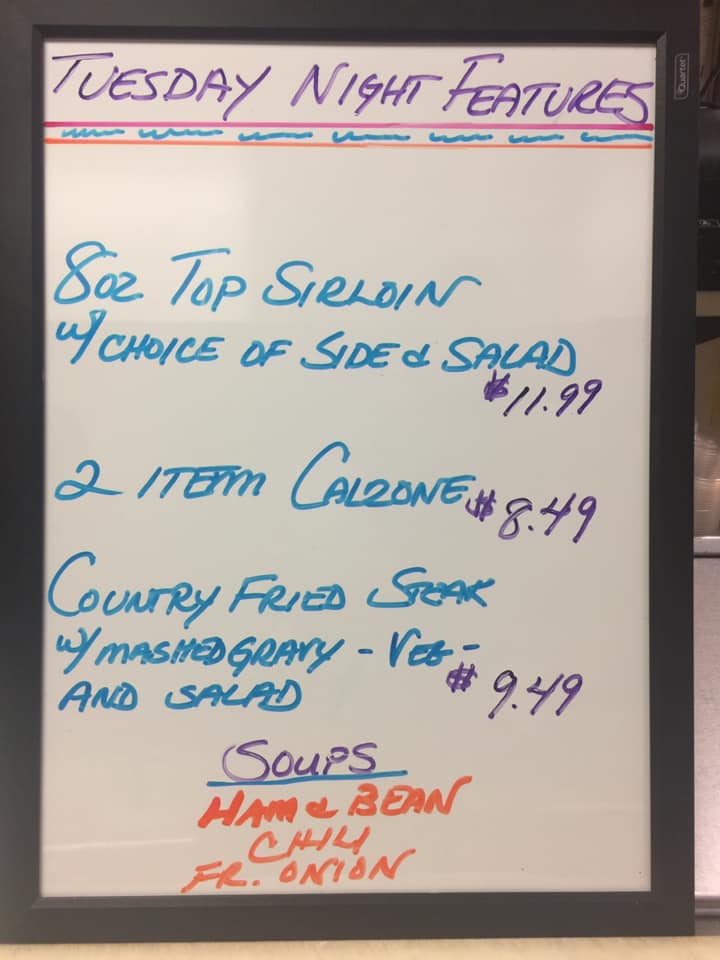 TUESDAY NIGHT FEATURES
Quartet
8oz TOP SIRLOIN
w/ CHOICE OF SIDE & SALAD
$11.99
2 ITEM CALZONE $8.49
COUNTRY FRIED STEAK
w/ MASHED GRAVY - VEG -
AND SALAD $9.49
SOUPS
HAM & BEAN
CHILI
FR. ONION